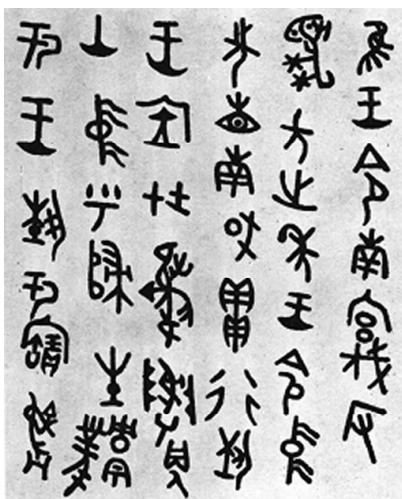 隹王令南宮伐反
虎方之年王令中
先省南或貫行埶
王应才夔真
山中乎歸生鳳
于王埶于寶彝